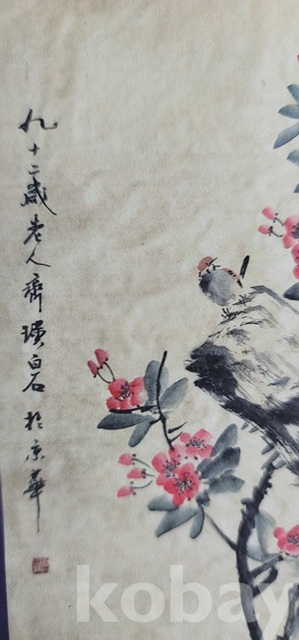 九十二歲老人齊璜白石於京華
kobay